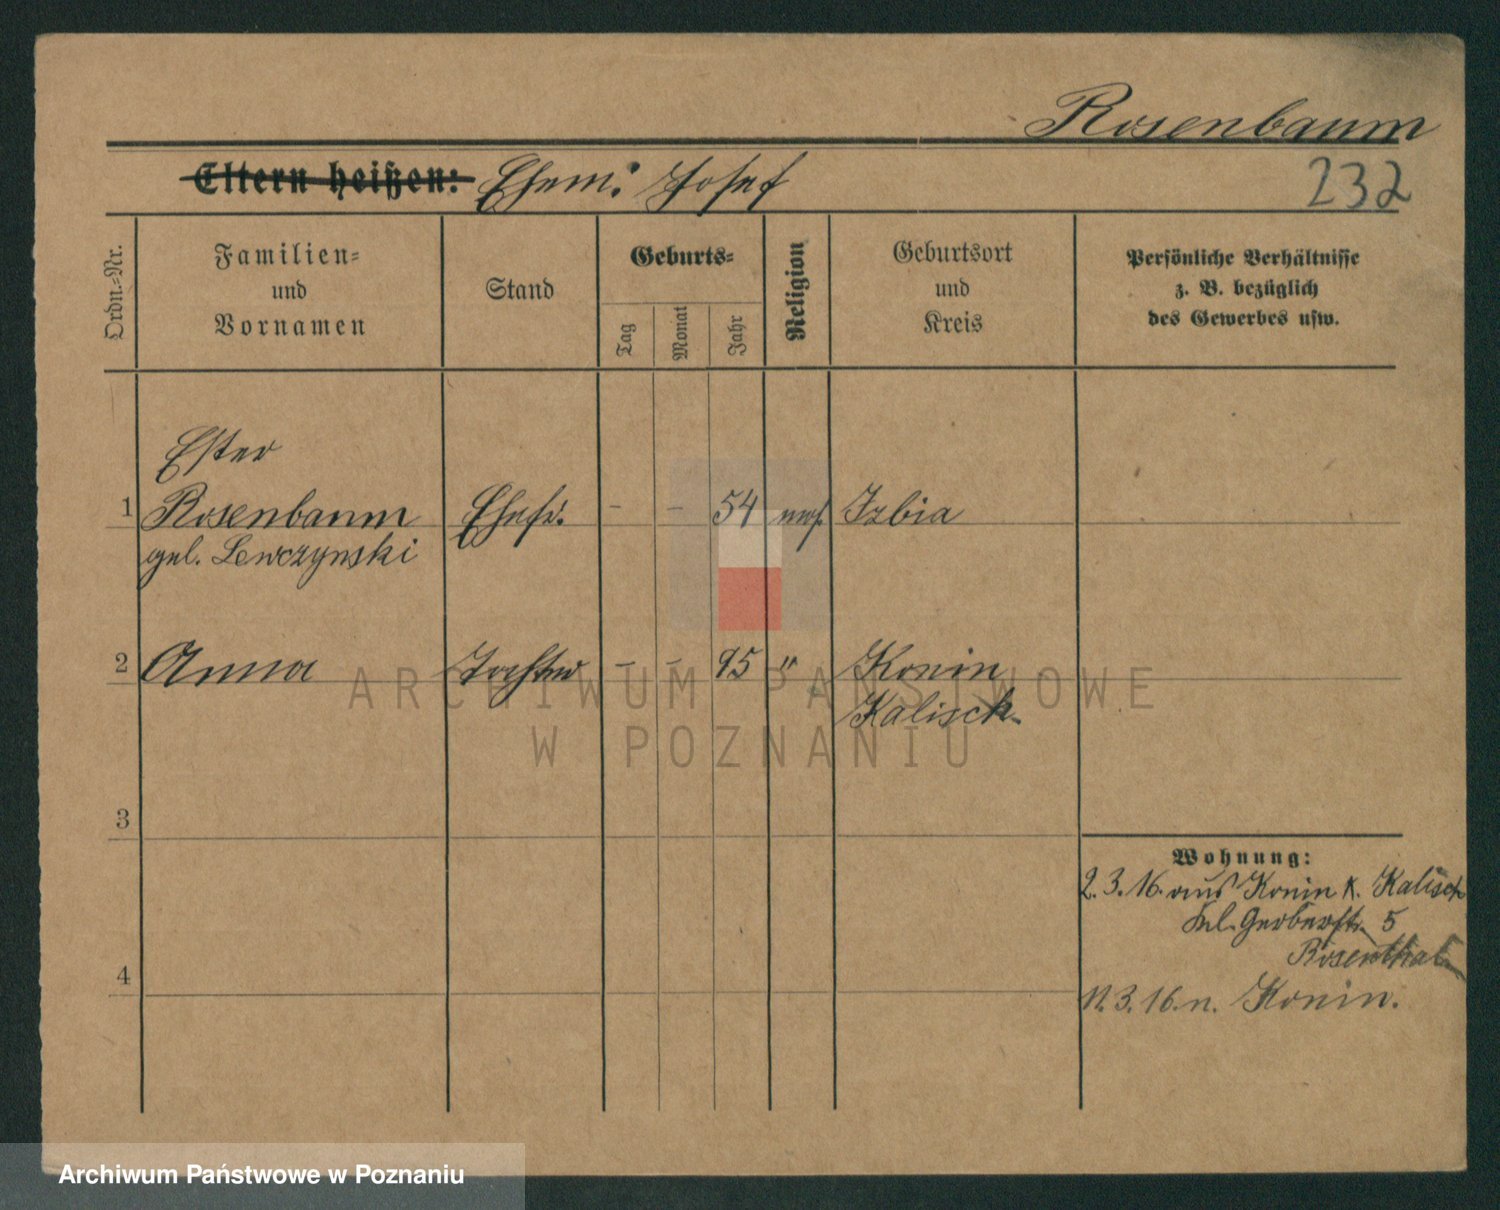 Rosenbaum
232
Eltern heißen: Ehem: Josef
Ordn.-Nr.
Familien-
und
Vornamen
Stand
Geburts-
Tag
Monat
Jahr
Religion
Geburtsort
und
Kreis
Persönliche Verhältnisse
z. B. bezüglich
des Gewerbes usw.
Ester
1 Rosenbaum Ehefr. - - 54 mos. Izbia
geb. Lewczynski
2 Anna Tochter - - 95 " Konin
Kalisch.
ARCHIWUM PAŃSTWOWE
W POZNANIU
3
Wohnung:
2.3.16. aus Konin K. Kalisch
Kl. Gerberstr. 5
Rosenthal
4
11.3.16. n. Konin.
Archiwum Państwowe w Poznaniu